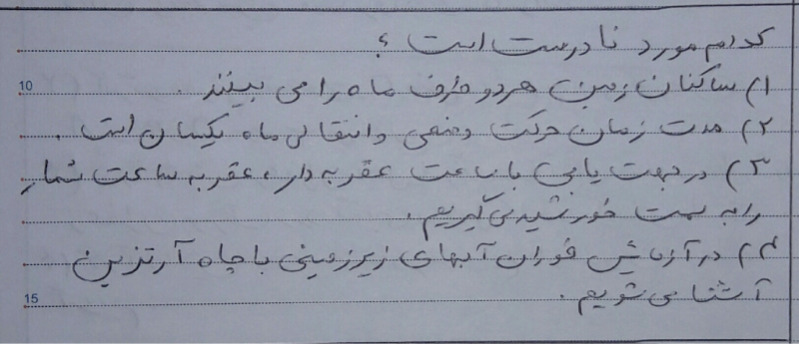 کدام مورد نادرست است؟
۱) ساکنان زمین هر دو طرف ماه را می بینند.
۲) مدت زمان حرکت وضعی و انتقالی ماه یکسان است.
۳) در جهت یابی با ساعت عقربه دار، عقربه ساعت شمار
را به سمت خورشید می گیریم.
۴) در آزمایش فوران آبهای زیرزمینی با چاه آرتزین
آشنا می شویم.
10
15